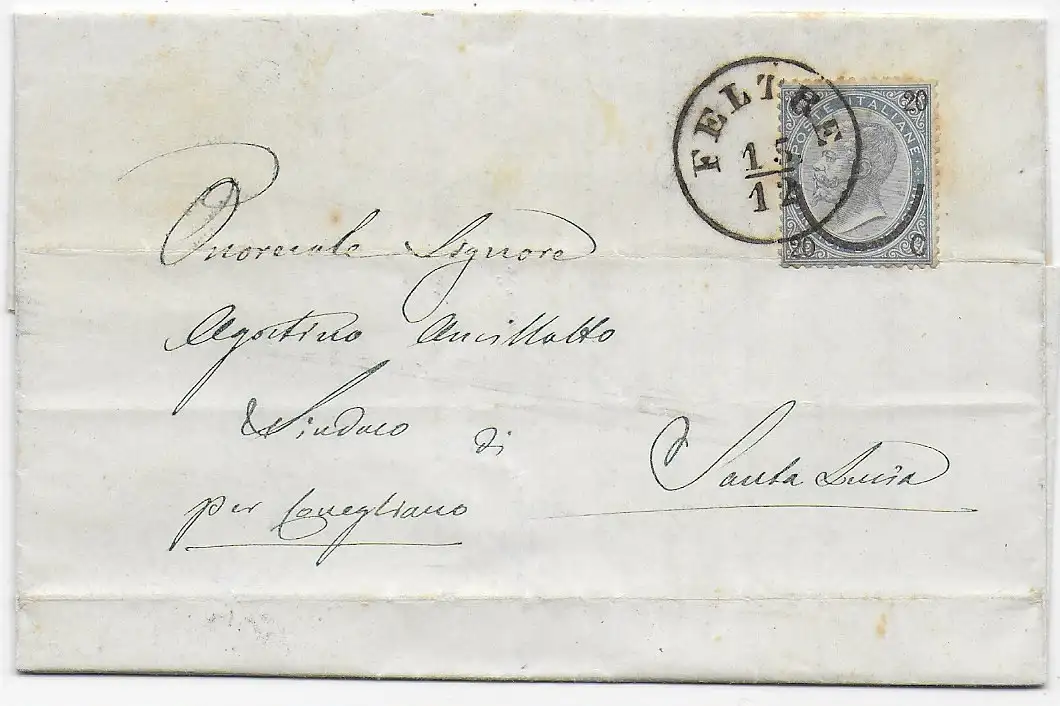 FELTRE
15
12
20
POSTE ITALIANE
20 C
Onorevole Signore
Agostino Ancillotto
Sindaco di Santa Lucia
per Conegliano